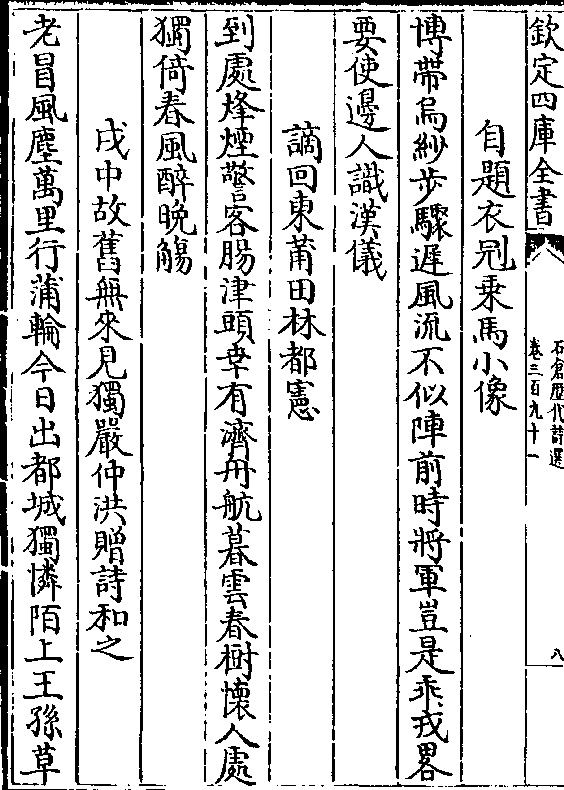 欽定四庫全書
石倉歷代詩選
卷三百九十一
八
自題衣冠乘馬小像
博帶烏紗步驟遲風流不似陣前時將軍豈是乖戎畧
要使邊人識漢儀
謫回東莆田林都憲
到處烽煙警客腸津頭幸有濟舟航暮雲春樹懷人處
獨倚春風醉晚觴
戍中故舊無來見獨嚴仲洪贈詩和之
老冒風塵萬里行蒲輪今日出都城獨憐陌上王孫草